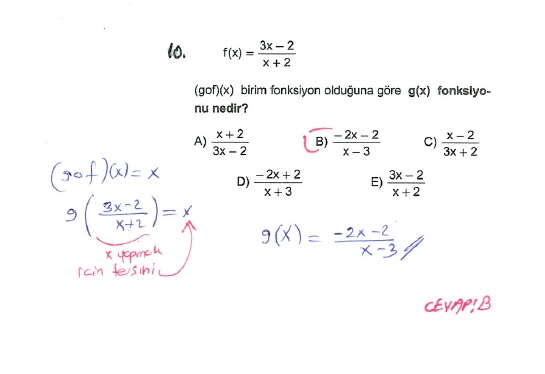 10. f(x) = (3x − 2)/(x + 2)
(gof)(x) birim fonksiyon olduğuna göre g(x) fonksiyo-
nu nedir?
A) (x + 2)/(3x − 2) B) (−2x − 2)/(x − 3) C) (x − 2)/(3x + 2)
D) (−2x + 2)/(x + 3) E) (3x − 2)/(x + 2)
(gof)(x) = x
g((3x−2)/(x+2)) = x
x yapmak
için tersini
g(x) = (−2x−2)/(x−3)
CEVAP: B